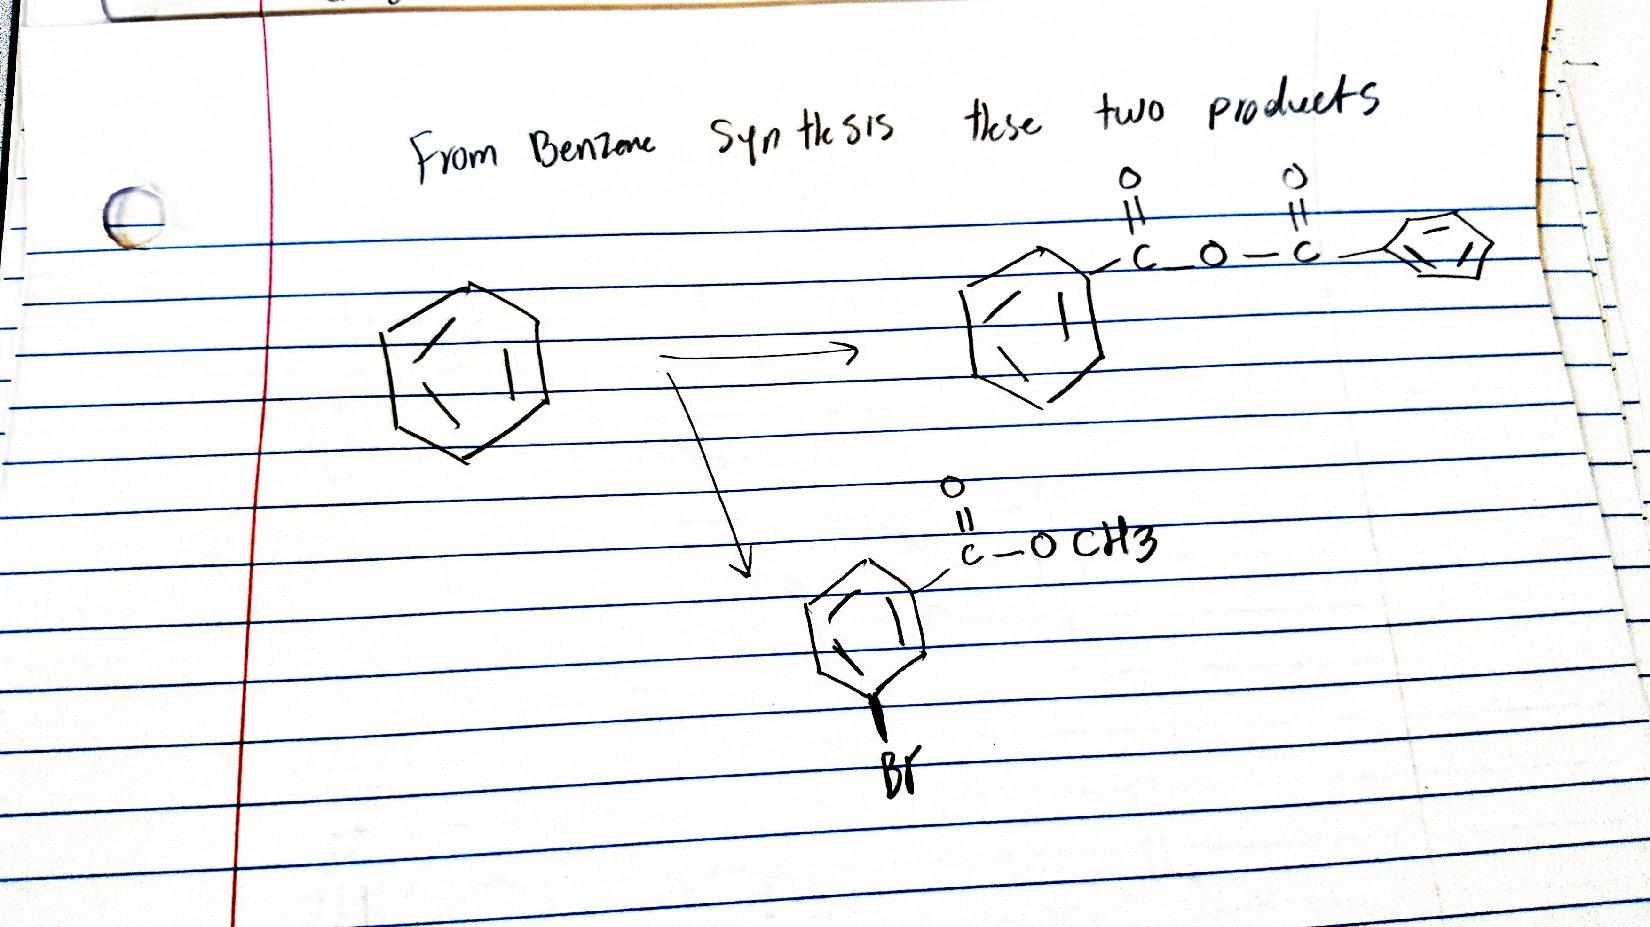 From Benzene Synthesis these two products
O O
C O C
O
C O CH3
Br